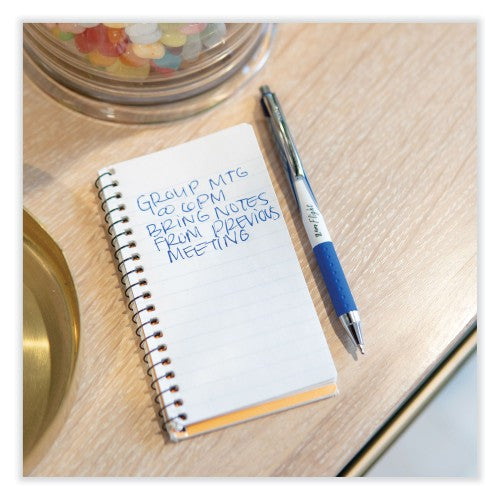 GROUP MTG
@ 6PM
BRING NOTES
FROM PREVIOUS
MEETING
Z-Grip Flight